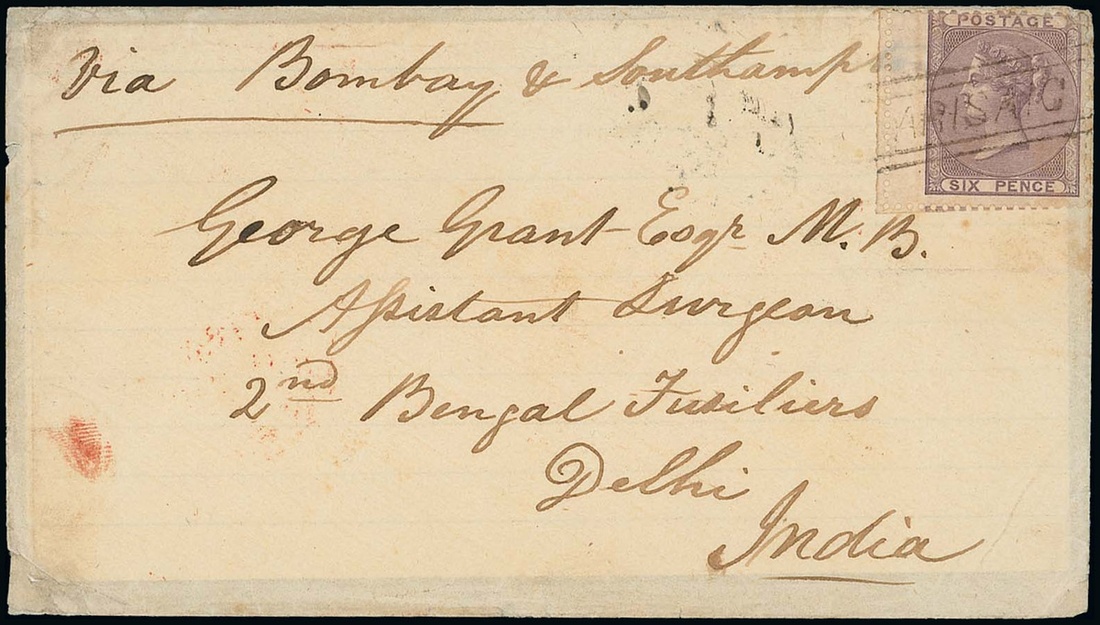 via Bombay & Southamp
POSTAGE
ARISAIG
SIX PENCE
George Grant Esqr M.B.
Assistant Surgeon
2nd Bengal Fusiliers
Delhi
India